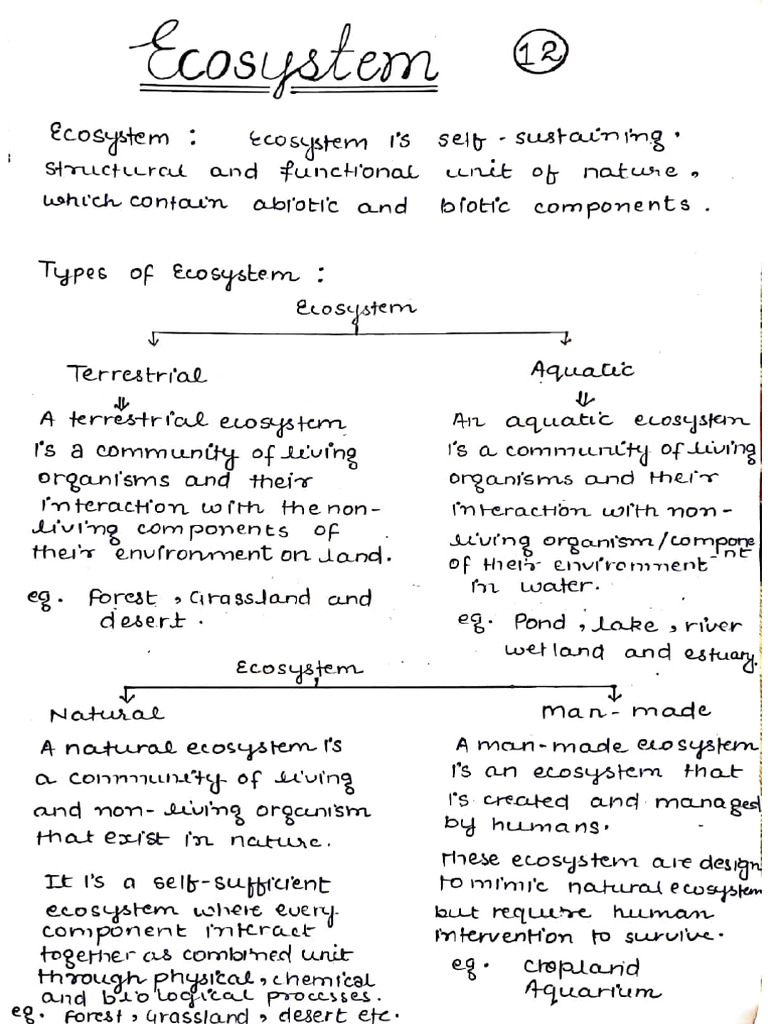 Ecosystem 12
Ecosystem : Ecosystem is self-sustaining.
structural and functional unit of nature,
which contain abiotic and biotic components.
Types of Ecosystem :
Ecosystem
Terrestrial
A terrestrial ecosystem
is a community of living
organisms and their
interaction with the non-
living components of
their environment on land.
eg. Forest, Grassland and
desert.
Aquatic
An aquatic ecosystem
is a community of living
organisms and their
interaction with non-
living organism/compone
nt
of their environment
in water.
eg. Pond, lake, river
wetland and estuary.
Ecosystem
Natural
A natural ecosystem is
a community of living
and non-living organism
that exist in nature.
It is a self-sufficient
ecosystem where every
component interact
together as combined unit
through physical, chemical
and biological processes.
eg. Forest, Grassland, desert etc.
Man-made
A man-made ecosystem
is an ecosystem that
is created and managed
by humans.
These ecosystem are design
to mimic natural ecosystem
but require human
intervention to survive.
eg. Cropland
Aquarium